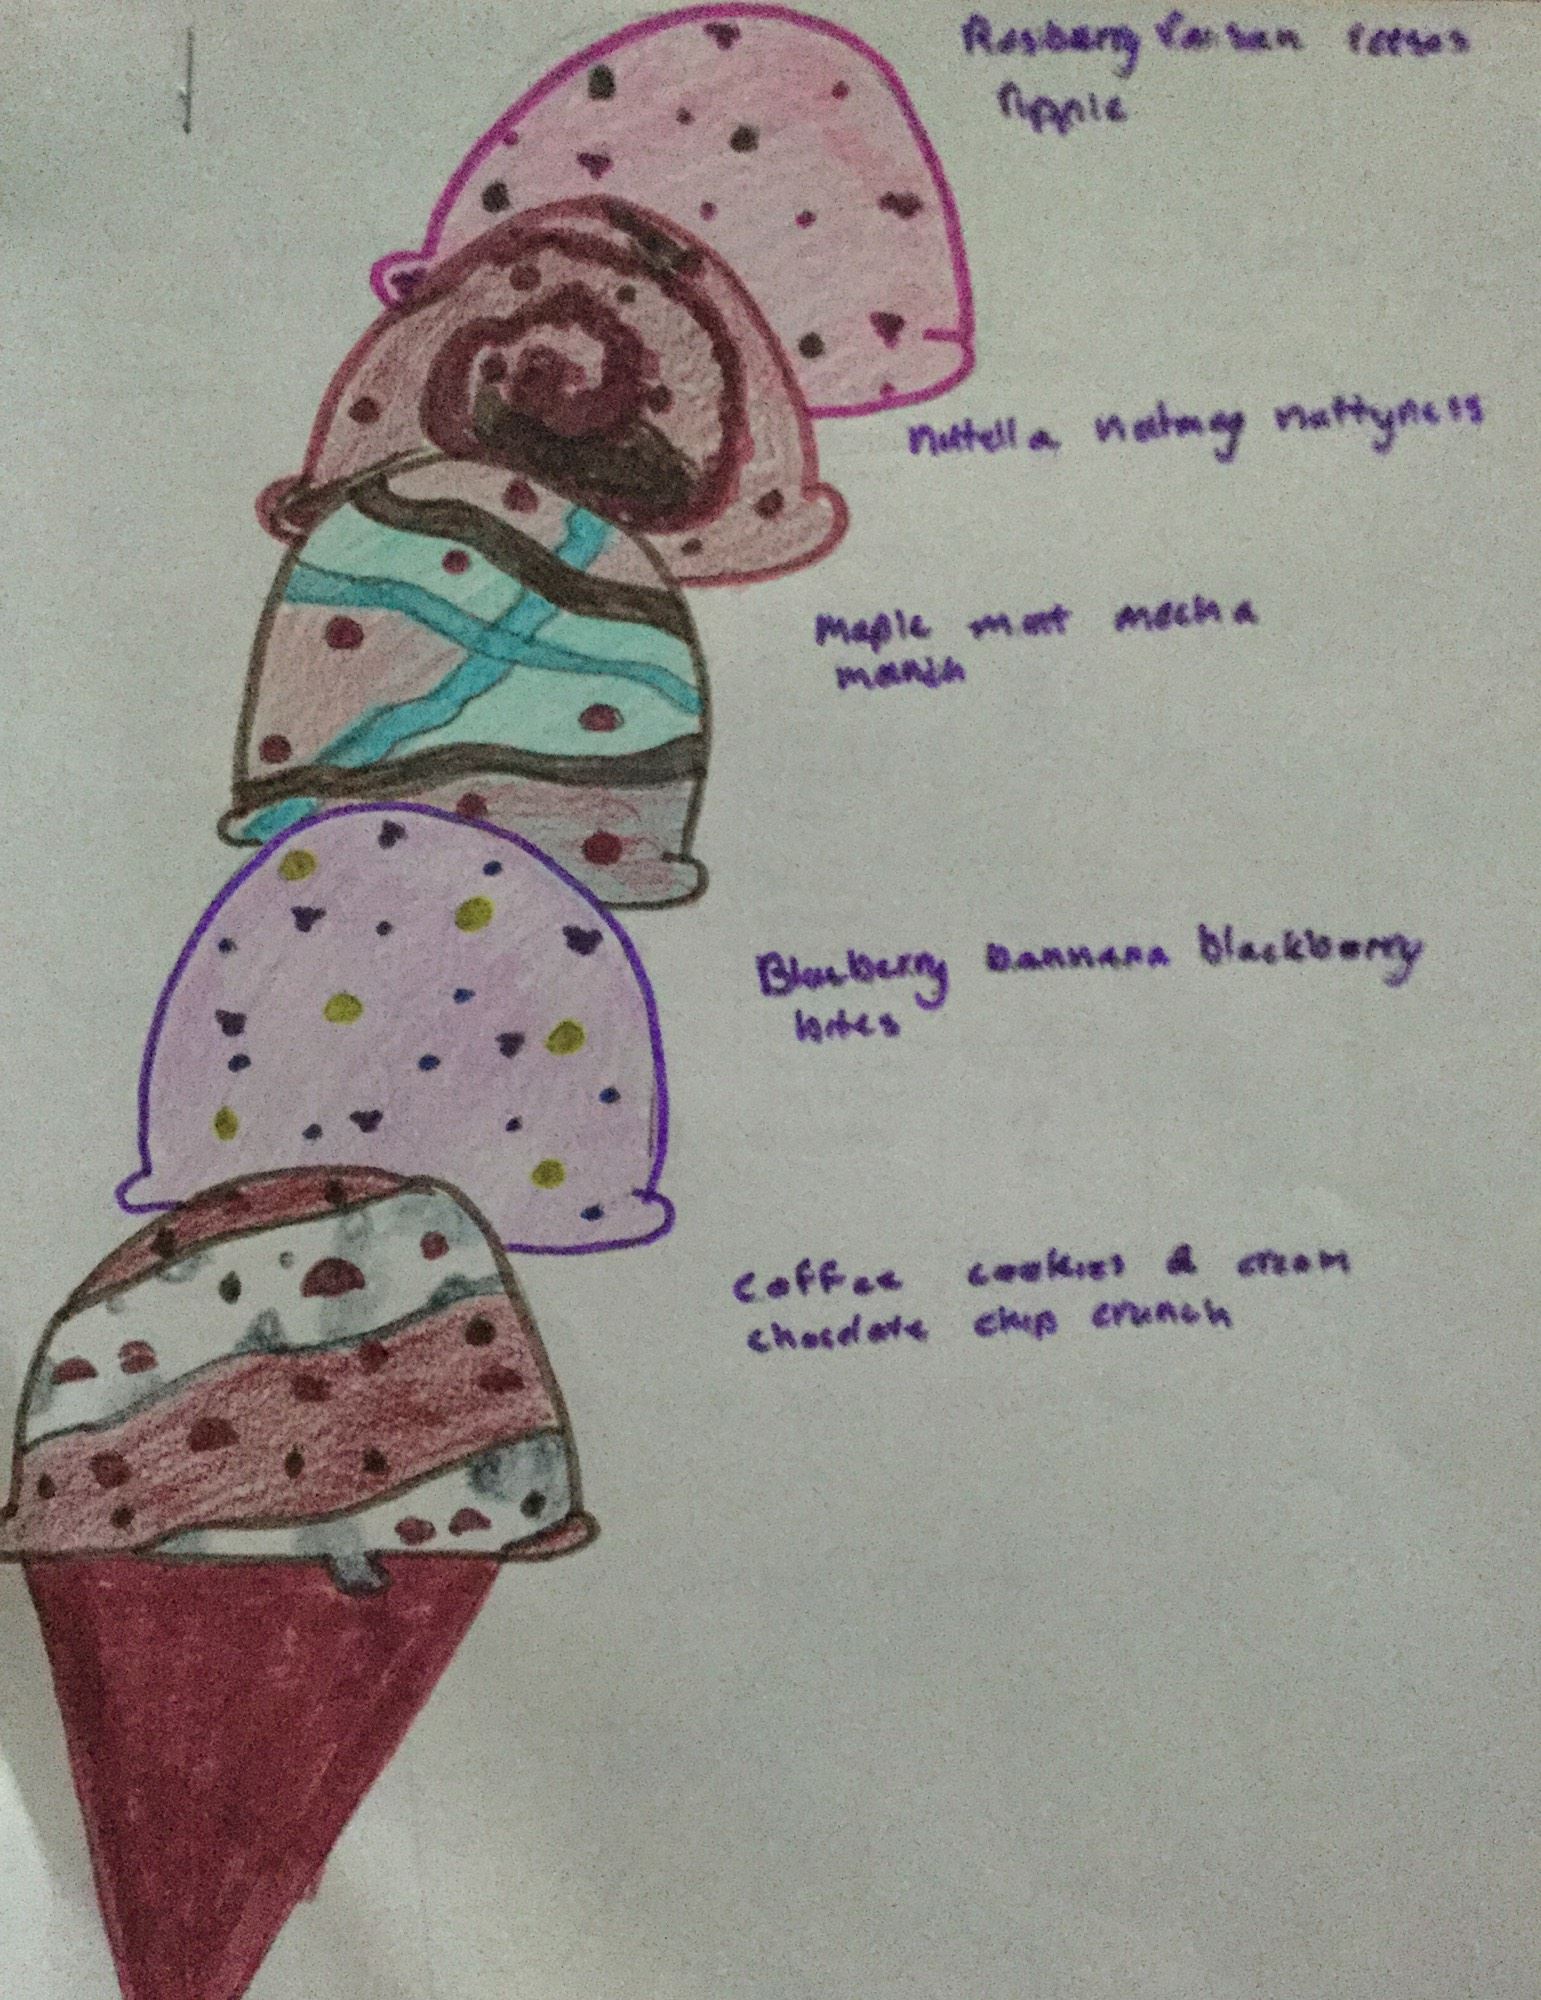 Rasberry raisan reeses
ripple
nutella nutmeg nuttyness
maple mint mocha
manich
Blueberry bannana blackberry
bites
coffee cookies & cream
chocolate chip crunch